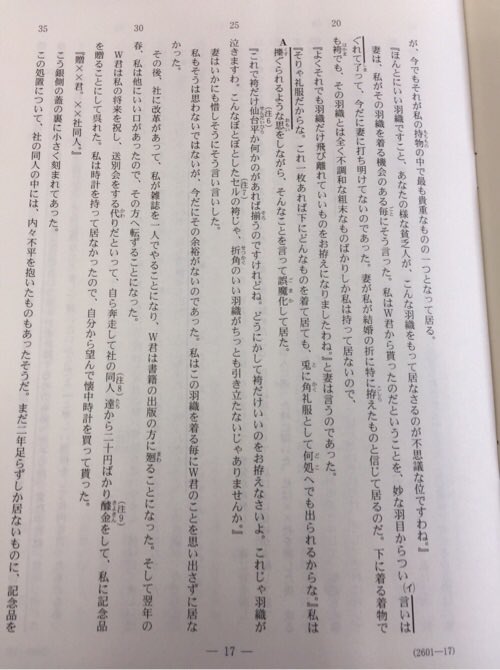 が、今でもそれが私の持物の中で最も貴重なものの一つとなって居る。
『ほんとにいい羽織ですこと、あなたの様な貧乏人が、こんな羽織をもって居なさるのが不思議な位ですわね。』
妻は、私がその羽織を着る機会のある毎にそう言った。私はW君から貰ったのだということを、妙な羽目からつい(イ)言いは
ぐれて了って、今だに妻に打ち明けてないのであった。妻が私が結婚の折に特に拵えたものと信じて居るのだ。下に着る着物で
20
も袴でも、その羽織とは全く不調和な粗末なものばかりしか私は持って居ないので、
『よくそれでも羽織だけ飛び離れていいものをお拵えになりましたわね。』と妻は言うのであった。
『そりゃ礼服だからな。これ一枚あれば下にどんなものを着て居ても、兎に角礼服として何処へでも出られるからな。』私は
A擽ぐられるような思をしながら、そんなことを言って誤魔化して居た。
『これで袴だけ仙台平か何かのがあれば揃うのですけれどね。どうにかして袴だけいいのをお拵えなさいよ。これじゃ羽織が
25
泣きますわ。こんなぼとぼとしたセルの袴じゃ、折角のいい羽織がちっとも引き立たないじゃありませんか。』
妻はいかにも惜しそうにそう言い言いした。
私もそうは思わないではないが、今だにその余裕がないのであった。私はこの羽織を着る毎にW君のことを思い出さずに居な
かった。
その後、社に改革があって、私が雑誌を一人でやることになり、W君は書籍の出版の方に廻ることになった。そして翌年の
30
春、私は他にいい口があったので、その方へ転ずることになった。
W君は私の将来を祝し、送別会をする代りだといって、自ら奔走して社の同人達から二十円ばかり醵金をして、私に記念品
を贈ることにして呉れた。私は時計を持って居なかったので、自分から望んで懐中時計を買って貰った。
『贈××君。××社同人。』
こう銀側の蓋の裏に小さく刻まれてあった。
35
この処置について、社の同人の中には、内々不平を抱いたものもあったそうだ。まだ二年足らずしか居ないものに、記念品を
(注6)
(注7)
(注8)
(注9)
— 17 —
(2601—17)